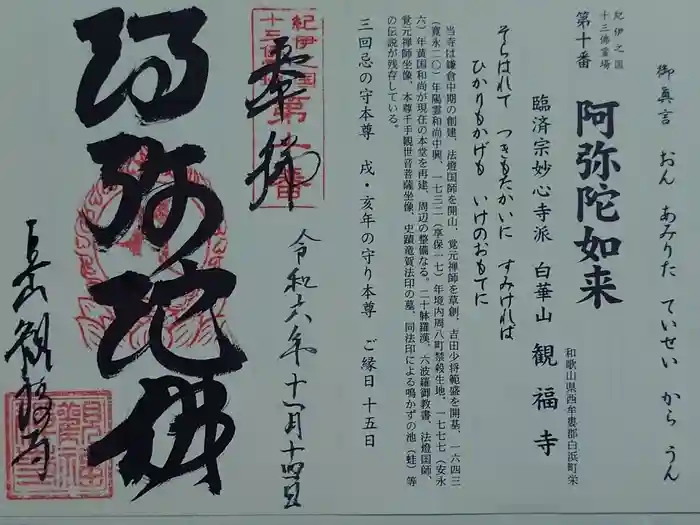 御真言　おん　あみりた　ていせい　から　うん
紀伊之国
十三佛霊場
第十番
阿弥陀如来
和歌山県西牟婁郡白浜町栄
臨済宗妙心寺派　白華山　観福寺
そらはれて　つきもたかいに　すみければ
ひかりもかげも　いけのおもてに
当寺は鎌倉中期の創建、法燈国師を開山、覚元禅師を草創、吉田少将範盛を開基、一六四三
（寛永二〇）年陽雲和尚中興、一七三二（享保一七）年境内周八町禁殺生地、一七七七（安永
六）年黄国和尚が現在の本堂を再建、周辺の整備なる。二十躰羅漢、六波羅御教書、法燈国師、
覚元禅師坐像、本尊千手観世音菩薩坐像、史蹟竜賀法印の墓、同法印による鳴かずの池（蛙）等
の伝説が残存している。
三回忌の守本尊　戌・亥年の守り本尊　ご縁日　十五日
紀伊之国
十三佛霊場
第十番
奉拝
令和六年十一月十四日
阿弥陀佛
観福寺